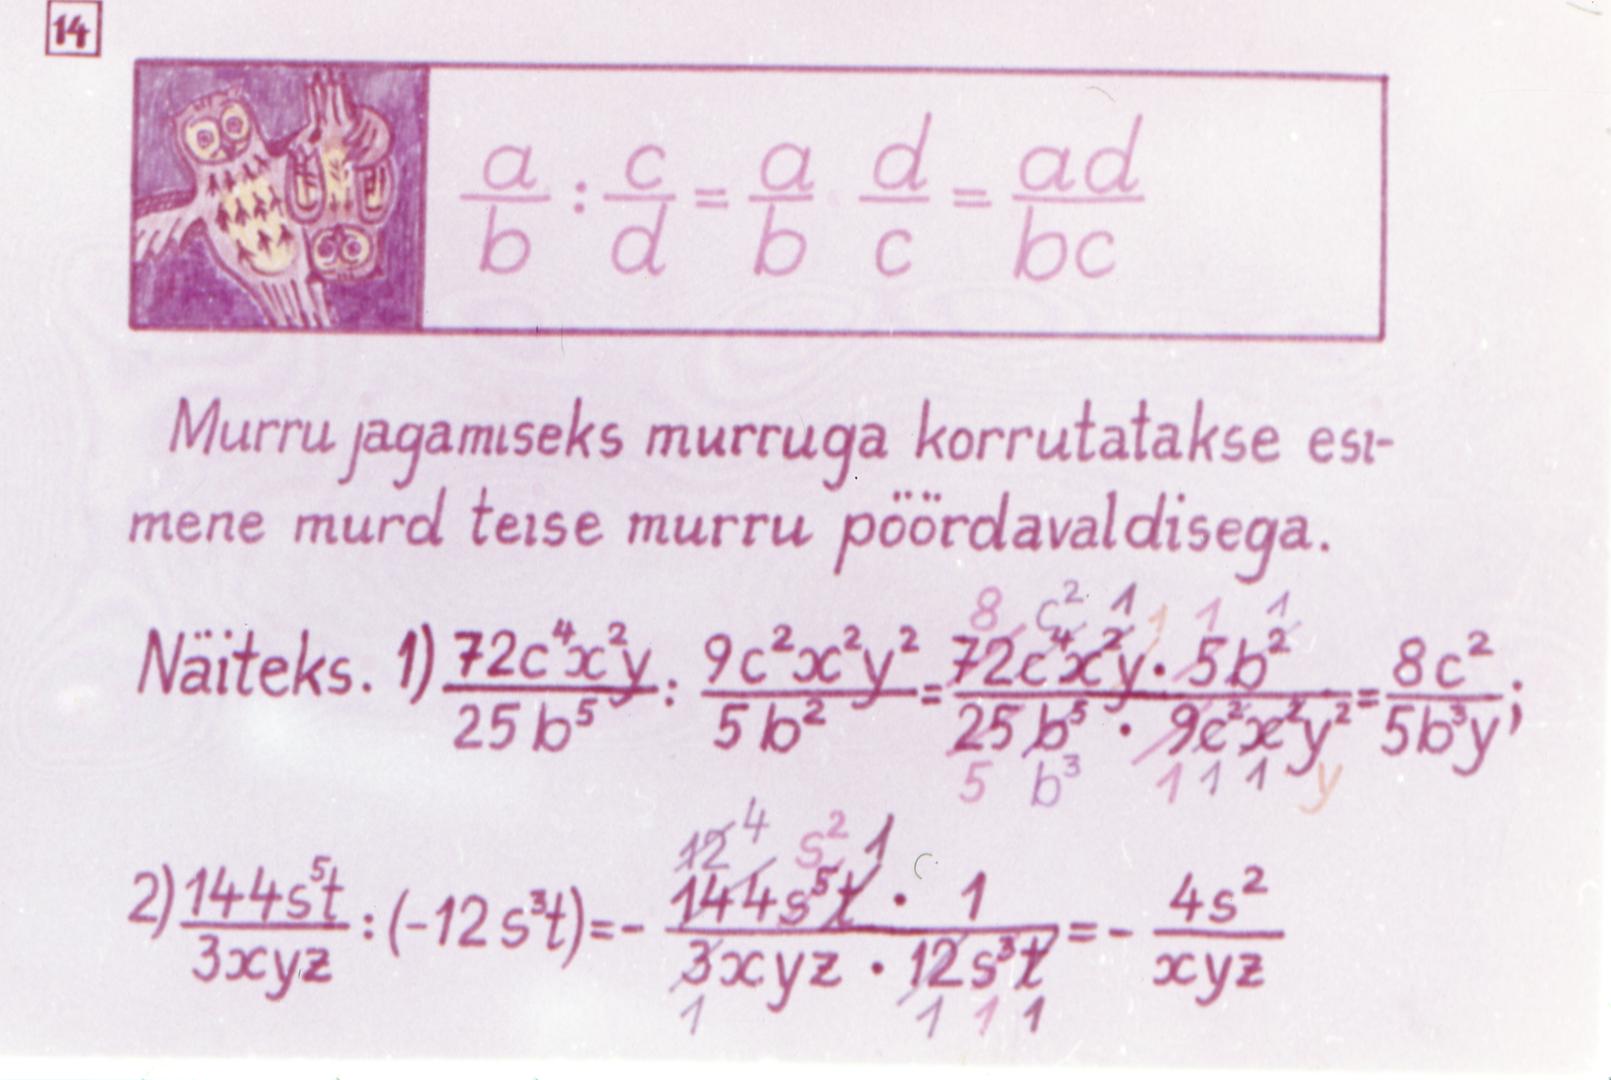 14
a/b : c/d = a/b · d/c = ad/bc
Murru jagamiseks murruga korrutatakse esi-
mene murd teise murru pöördavaldisega.
8 c² 1 1 1 1
Näiteks. 1) 72c⁴x²y/25b⁵ : 9c²x²y²/5b² = 72c⁴x²y · 5b²/25b⁵ · 9c²x²y² = 8c²/5b³y;
5 b³ 1 1 1 y
12 4 s² 1
2) 144s⁵t/3xyz : (-12s³t) = - 144s⁵t · 1/3xyz · 12s³t = - 4s²/xyz
1 1 1 1